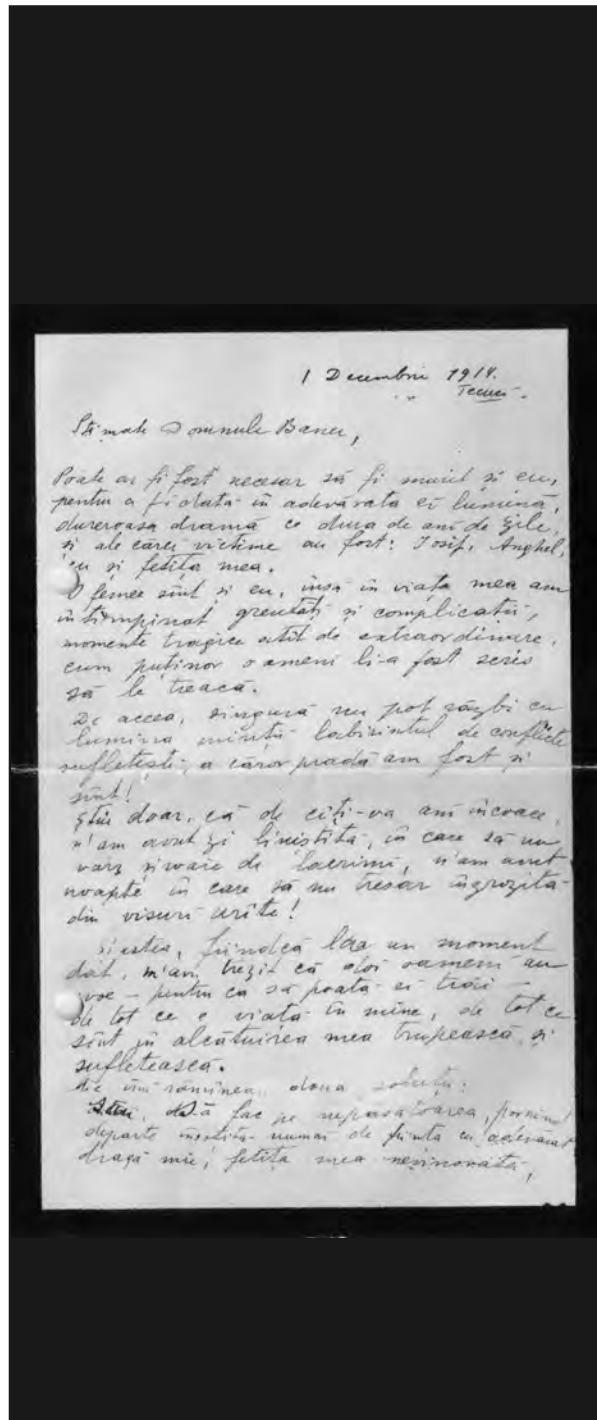 1 Decembrie 1914.
Tecuci.
Stimate Domnule Banu,
Poate ar fi fost necesar să fi murit și eu,
pentru a fi dată în adevărata ei lumină,
dureroasa dramă ce dura de ani de zile,
și ale cărei victime au fost: Iosif, Anghel,
eu și fetița mea.
O femee sînt și eu, însă în viața mea am
întîmpinat greutăți și complicații,
momente tragice atît de extraordinare,
cum puținor oameni li-a fost scris
să le treacă.
De aceea, singură nu pot răzbi cu
lumina minții labirintul de conflicte
sufletești, a căror pradă am fost și
sînt!
Știu doar, că de cîți-va ani încoace,
n'am avut zi liniștită, în care să nu
vărs șiroaie de lacrimi, n'am avut
noapte în care să nu tresar îngrozită
din visuri urîte!
Și astea, fiindcă la un moment
dat, m'am trezit că doi oameni au
nevoe - pentru ca să poată ei trăi -
de tot ce e viață în mine, de tot ce
sînt în alcătuirea mea trupească și
sufletească.
îmi rămînea două soluții:
Să fac pe nepăsătoarea, pornind
departe însoțită numai de ființa cu adevărat
dragă mie, fetița mea nevinovată,